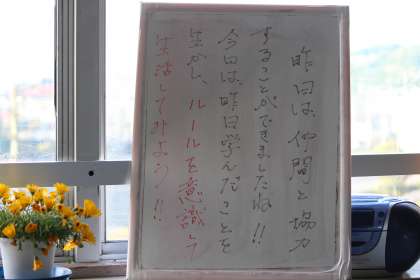 昨日は、仲間と協力
することができましたね!!
今日は、昨日学んだことを
生かし、ルールを意識して
生活してみよう!!